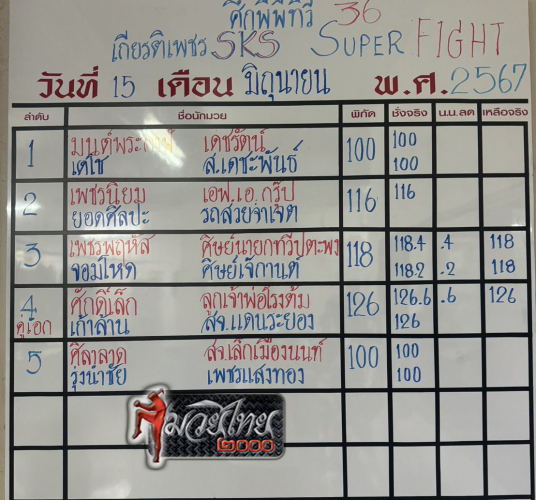 ศึกพีพีทีวี 36
เกียรติเพชร SKS SUPER FIGHT
วันที่ 15 เดือน มิถุนายน พ.ศ. 2567
ลำดับ ชื่อนักมวย พิกัด ชั่งจริง น.น.ลด เหลือจริง
1 เดชรัตน์ 100 100
เตโช ส.เดชะพันธ์ 100
2 เพชรนิยม เอฟ.เอ.กรุ๊ป 116 116
ยอดศิลปะ รถสวยจ่าเจต
3 เพชรพฤหัส ศิษย์นายกทวีปตะพง 118 118.4 .4 118
จอมโหด ศิษย์เจ๊กานต์ 118.2 .2 118
4 ศักดิ์เล็ก ลูกเจ้าพ่อโรงต้ม 126 126.6 .6 126
คู่เอก เก้าล้าน สจ.แดนระยอง 126
5 ศิลาลาด สจ.เล็กเมืองนนท์ 100 100
รุ่งนำชัย เพชรแสงทอง 100
มวยไทย
๒๐๐๐